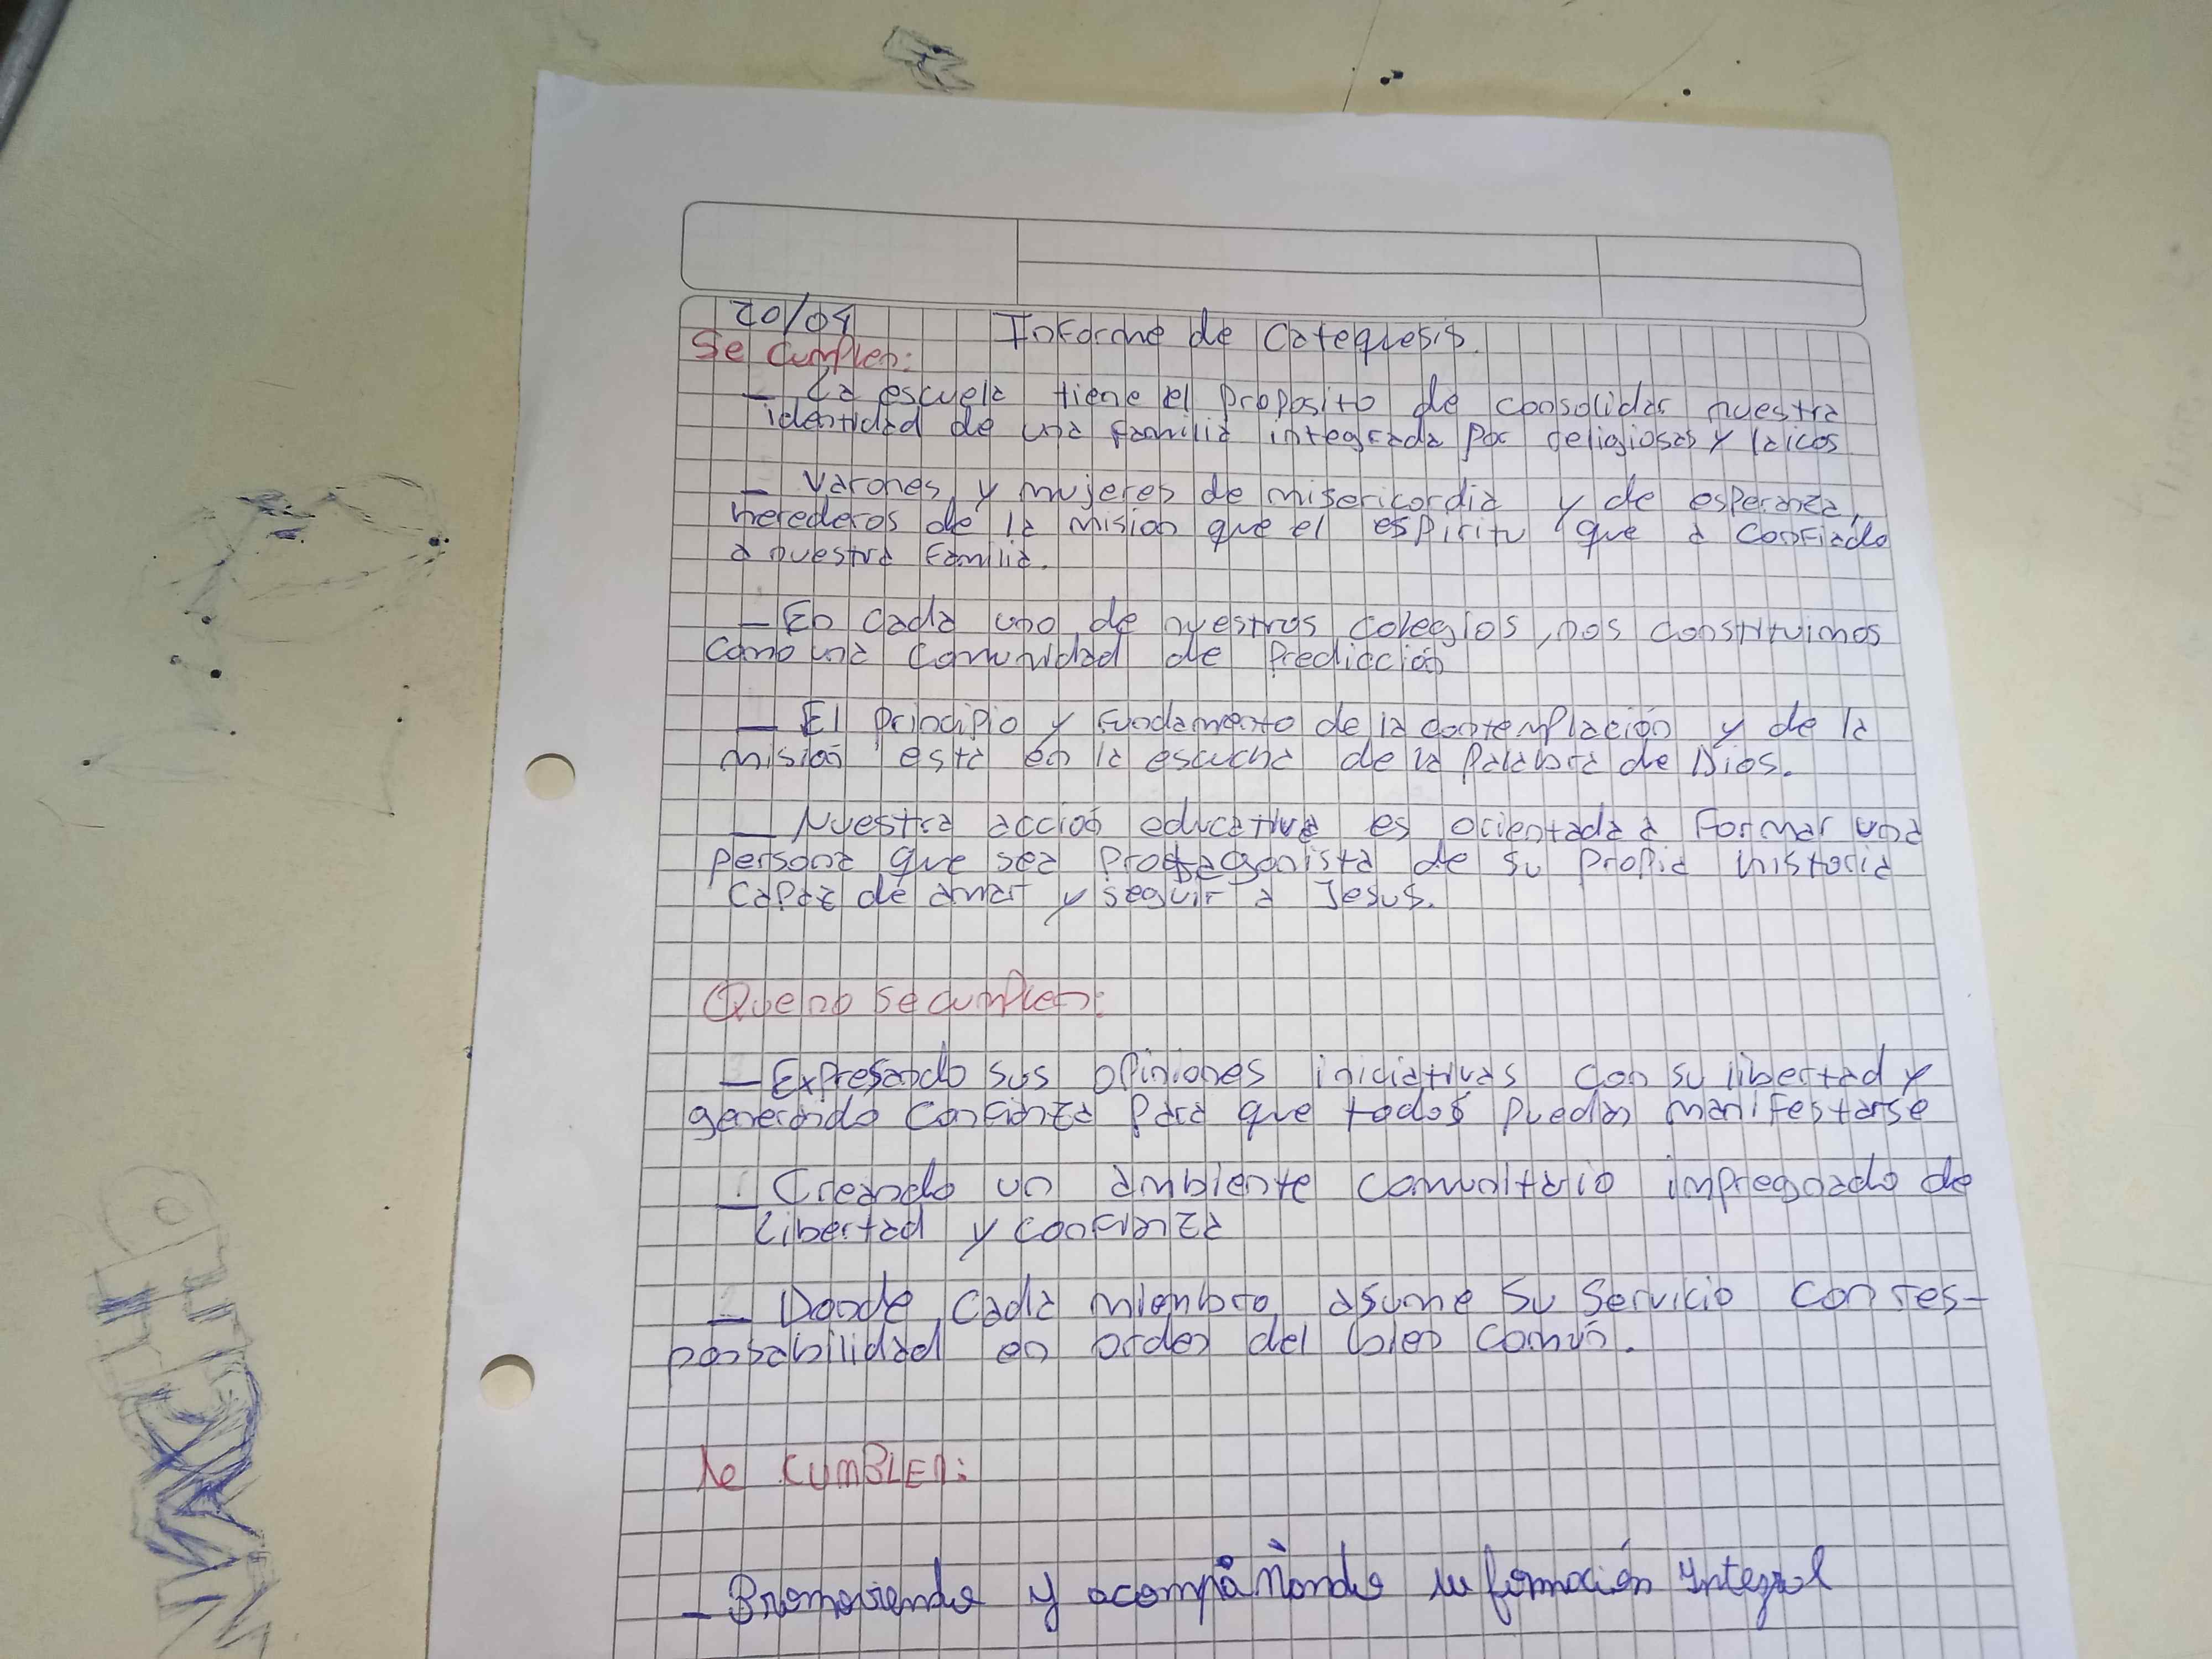 20/04
Informe de Catequesis.
Se Cumplen:
- La escuela tiene el proposito de consolidar nuestra
identidad de una familia integrada por religiosas y laicos
- Varones y mujeres de misericordia y de esperanza,
herederos de la mision que el espiritu que a confiado
a nuestra familia.
- En cada uno de nuestros colegios, nos constituimos
como una comunidad de Predicción
- El principio y fundamento de la contemplación y de la
misión esta en la escucha de la Palabra de Dios.
- Nuestra acción educativa es orientada a formar una
persona que sea protagonista de su propia historia
capaz de amar y seguir a Jesus.
Que no se cumplen:
- Expresando sus opiniones iniciativas con su libertad y
generando confianza para que todos puedan manifestarse
- Creando un ambiente comunitario impregnado de
libertad y confianza
- Donde cada miembro asume su servicio con res-
ponsabilidad en orden del bien común.
Se CUMPLEN:
- Promoviendo y acompañando su formación integral